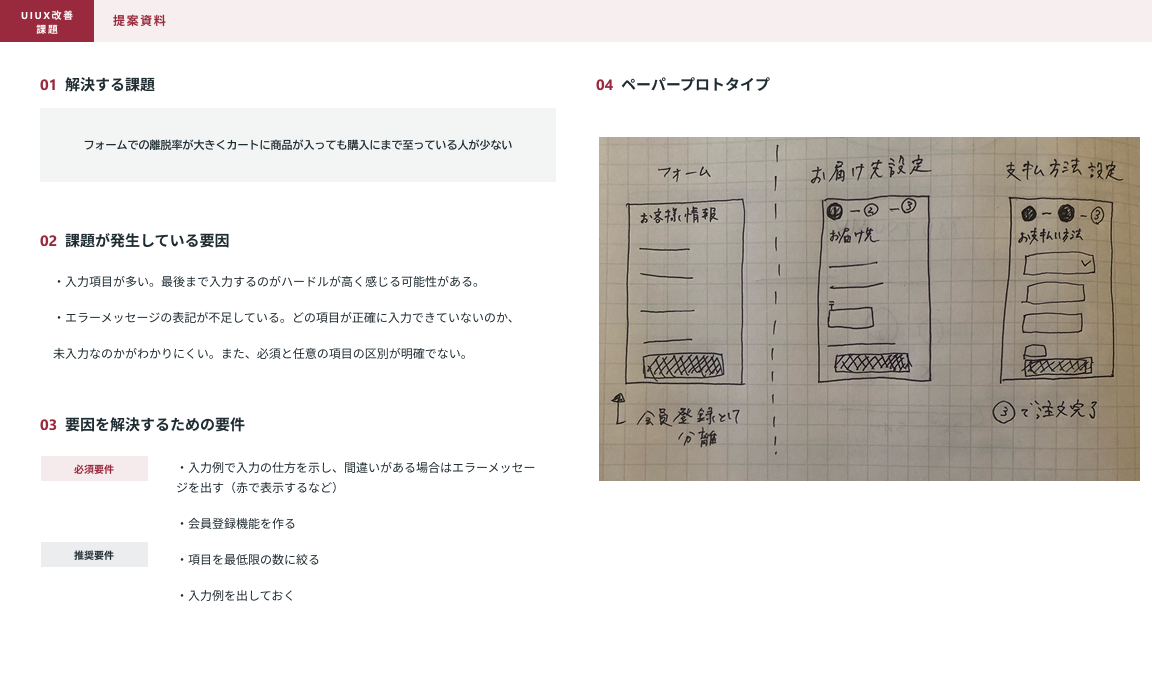 UIUX改善
課題
提案資料
01 解決する課題
フォームでの離脱率が大きくカートに商品が入っても購入にまで至っている人が少ない
02 課題が発生している要因
・入力項目が多い。最後まで入力するのがハードルが高く感じる可能性がある。
・エラーメッセージの表記が不足している。どの項目が正確に入力できていないのか、
未入力なのかがわかりにくい。また、必須と任意の項目の区別が明確でない。
03 要因を解決するための要件
必須要件
・入力例で入力の仕方を示し、間違いがある場合はエラーメッセー
ジを出す（赤で表示するなど）
・会員登録機能を作る
推奨要件
・項目を最低限の数に絞る
・入力例を出しておく
04 ペーパープロトタイプ
フォーム
お客様情報
会員登録として
分離
お届け先設定
① − ② − ③
お届け先
〒
支払方法設定
① − ② − ③
お支払い方法
③で注文完了